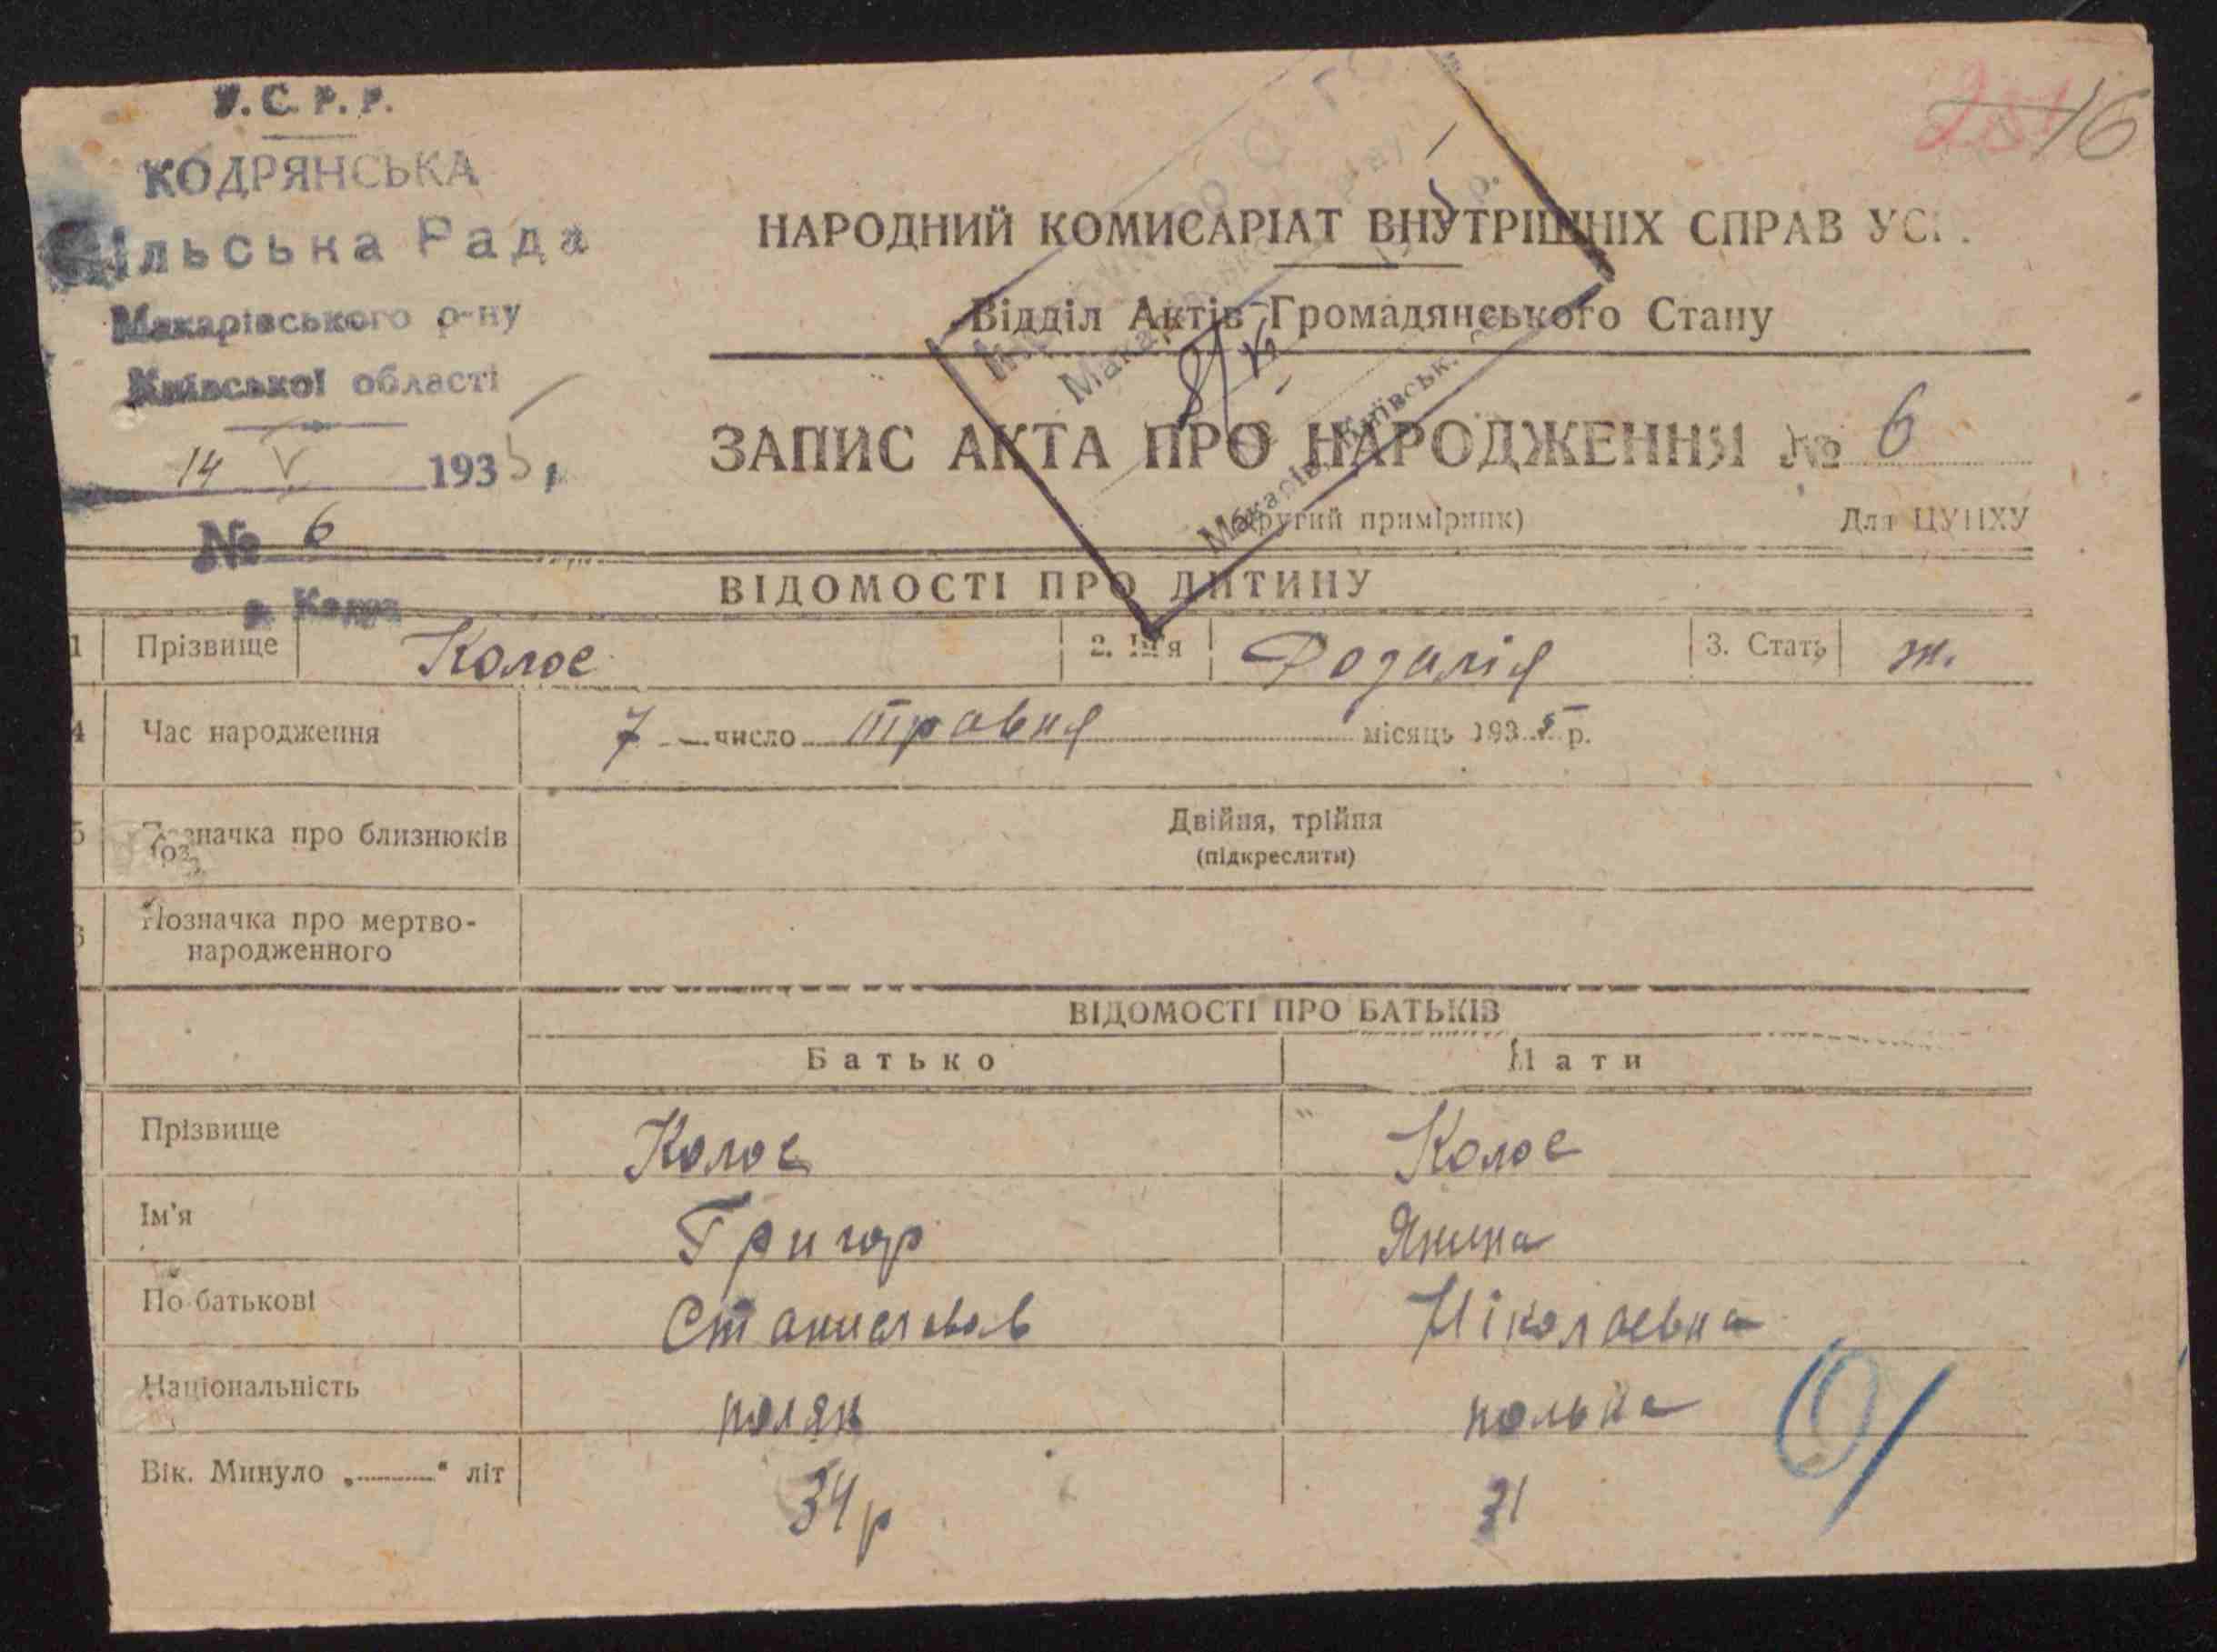 У.С.Р.Р.
КОДРЯНСЬКА
Сільська Рада
Макарівського р-ну
Київської області
14 V 1935 р
№ 6
с. Кодра
16
НАРОДНИЙ КОМИСАРІАТ ВНУТРІШНІХ СПРАВ УС
Відділ Актів Громадянського Стану
ЗАПИС АКТА ПРО НАРОДЖЕННЯ № 6
(Другий примірник) Для ЦУНХУ
ВІДОМОСТІ ПРО ДИТИНУ
1 Прізвище Колос 2. Ім'я Розалія 3. Стать ж.
4 Час народження 7 число травня місяць 1935 р.
5 Позначка про близнюків Двійня, трійня
(підкреслити)
6 Позначка про мертво-
народженного
ВІДОМОСТІ ПРО БАТЬКІВ
Батько Мати
Прізвище Колос Колос
Ім'я Григор Янина
По-батькові Станиславов Ніколаевна
Національність поляк полька
Вік. Минуло „ “ літ 34 р 31